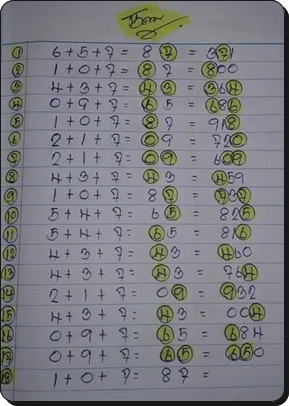 ① 6 + 5 + 7 = 8 7 = 371
② 1 + 0 + 7 = 8 7 = 800
③ 4 + 3 + 7 = 43 = 364
④ 0 + 9 + 7 = 65 = 686
⑤ 1 + 0 + 7 = 8 7 = 918
⑥ 2 + 1 + 7 = 09 = 720
⑦ 2 + 1 + 7 = 09 = 609
⑧ 4 + 3 + 7 = 43 = 459
⑨ 1 + 0 + 7 = 87 = 737
⑩ 5 + 4 + 7 = 65 = 825
⑪ 5 + 4 + 7 = 65 = 816
⑫ 4 + 3 + 7 = 43 = 460
⑬ 4 + 3 + 7 = 43 = 764
⑭ 2 + 1 + 7 = 09 = 932
⑮ 4 + 3 + 7 = 43 = 004
⑯ 0 + 9 + 7 = 65 = 684
⑰ 0 + 9 + 7 = 65 = 650
⑱ 1 + 0 + 7 = 87 =